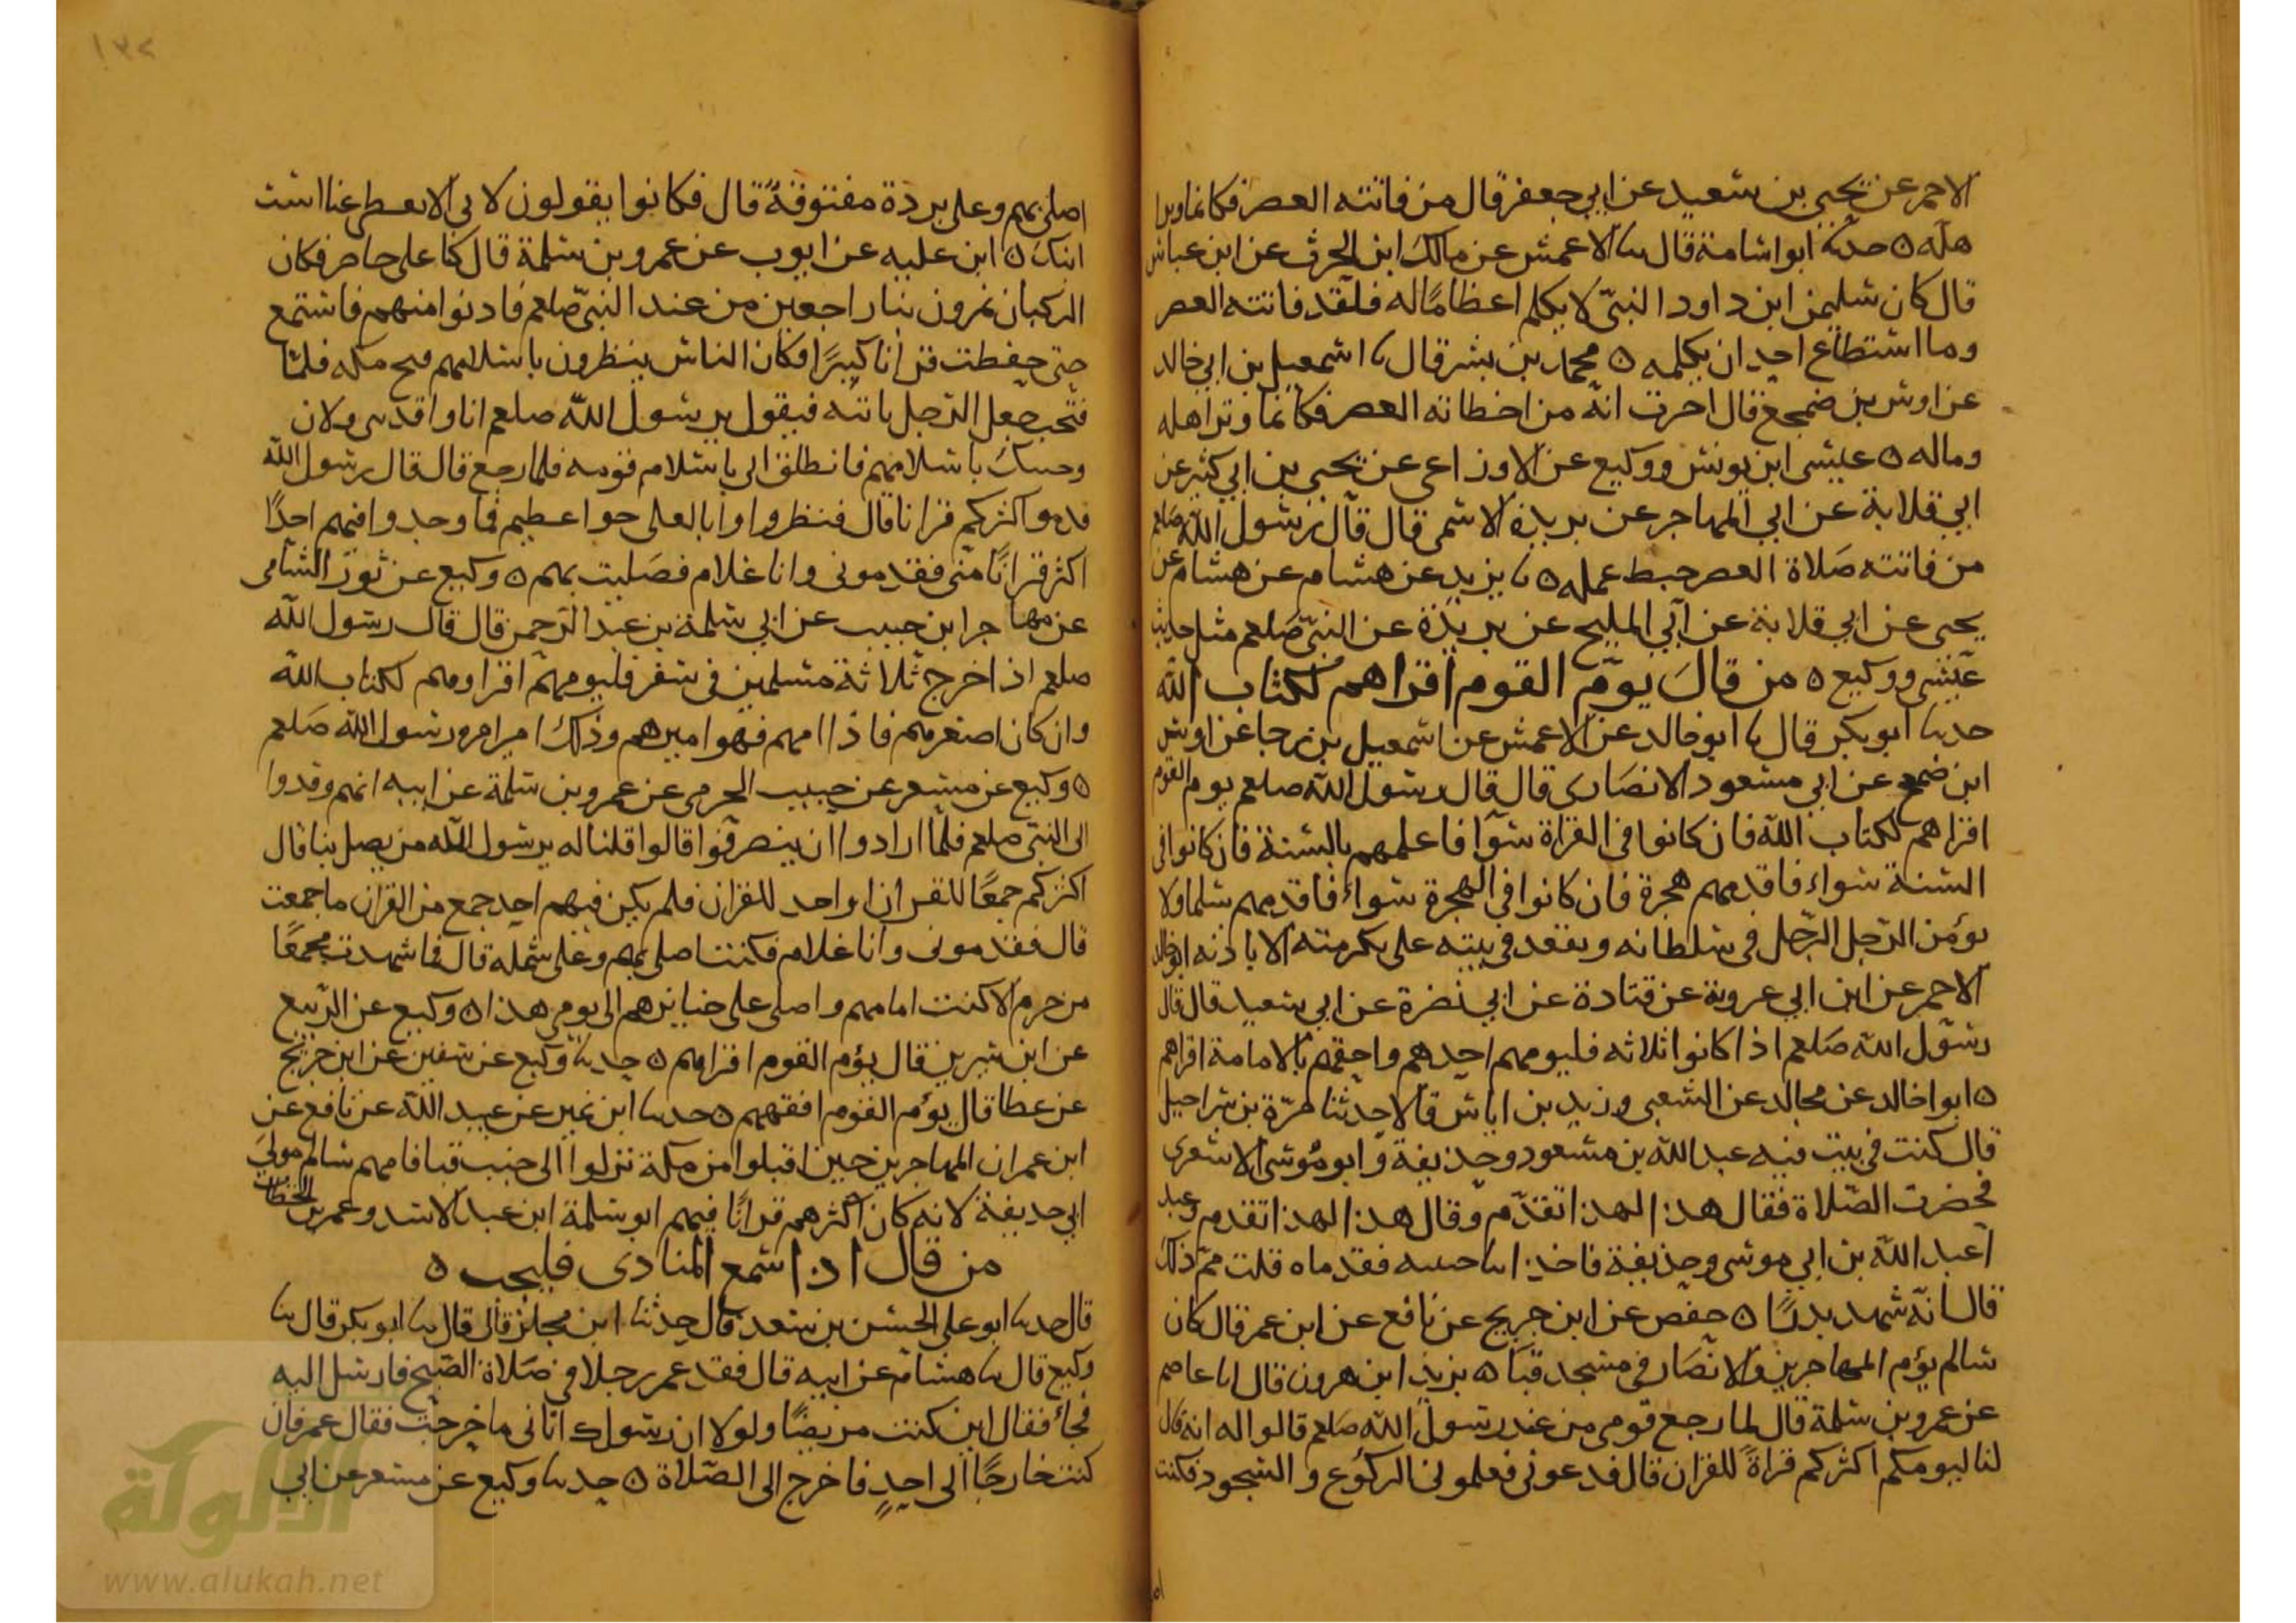 الاحمر عن يحيى بن سعيد عن ابي جعفر قال من فاتته العصر فكانما وترا
هله ه حدثنا ابو اسامة قال نا الاعمش عن مالك ابن الحرث عن ابن عباس
قال كان سليمن ابن داود النبي لا يكلم اعظاما له فلقد فاتته العصر
وما استطاع احد ان يكلمه ه محمد بن بشر قال نا اسمعيل بن ابي خالد
عن اوس بن ضمعج قال اخبرت انه من اخطاته العصر فكانما وتر اهله
وماله ه عيسى ابن يونس ووكيع عن الاوزاعي عن يحيى بن ابي كثير عن
ابي قلابة عن ابي المهاجر عن بريدة الاسمى قال قال رسول الله صلعم
من فاتته صلاة العصر حبط عمله ه نا يزيد عن هشام عن هشام عن
يحيى عن ابي قلابة عن ابي المليح عن بريدة عن النبي صلعم مثل حديث
عيسى ووكيع ه من قال يوم القوم اقراهم لكتاب الله
حدثنا ابو بكر قال نا ابو خالد عن الاعمش عن اسمعيل بن رجا عن اوس
ابن ضمعج عن ابي مسعود الانصاري قال قال رسول الله صلعم يوم القوم
اقراهم لكتاب الله فان كانوا في القراة سوآ فاعلمهم بالسنة فان كانوا في
السنة سواء فاقدمهم هجرة فان كانوا في الهجرة سواء فاقدمهم سلما ولا
يؤمن الرجل الرجل في سلطانه ويقعد في بيته على تكرمته الا باذنه ابو خالد
الاحمر عن ابن ابي عروبة عن قتادة عن ابي نضرة عن ابي سعيد قال قال
رسول الله صلعم اذا كانوا ثلاثه فليومهم احدهم واحقهم بالامامة اقراهم
ه ابوا خالد عن مجالد عن الشعبي وزيد بن اياس قالا حدثنا مرة بن شراحيل
قال كنت في بيت فيه عبد الله بن مسعود وحذيفة وابو موسى الاشعري
فحضرت الصلاة فقال هذا لهذا تقدم وقال هذا لهذا تقدم وعبد
اعبد الله بن ابي موسى وحذيفة فاخذ فقدماه قلت مم ذلك
قال انه شهد بدرا ه حفص عن ابن جريج عن نافع عن ابن عمر قال كان
سالم يؤم المهاجرين والانصار في مسجد قبا ه يزيد ابن هرون قال انا عاصم
عن عمرو بن سلمة قال لما رجع قومي من عند رسول الله صلعم قالوا له انه قال
لنا ليومكم اكثركم قراة للقران قال فدعوني فعلموني الركوع والسجود فكنت
اصلى بهم وعلى بردة مفتوقة قال فكانوا يقولون لابي الا تغطى عنا است
ابنك ه ابن عليه عن ايوب عن عمرو بن سلمة قال كنا على حاضر فكان
الركبان يمرون بنا راجعين من عند النبي صلعم فادنوا منهم فاستمع
حتى حفظت قرانا كبيرا وكان الناس ينظرون باسلامهم فتح مكه فلما
فتحت جعل الرجل ياتيه فيقول يرسول الله صلعم انا وافد بني فلان
وجيتك باسلامهم فانطلق ابي باسلام قومه فلما رجع قال قال رسول الله
قدموا اكثركم قرانا قال فنظروا وانا لعلى حوا عظيم فما وجدوا فيهم احدا
اكثر قرانا منى فقدموني وانا غلام فصليت بهم ه وكيع عن ثور الشامى
عن مهاجر ابن حبيب عن ابي سلمة بن عبد الرحمن قال قال رسول الله
صلعم اذا خرج ثلاثة مسلمين في سفر فليومهم اقراوهم لكتاب الله
وان كان اصغرهم فاذا امهم فهو اميرهم وذلك امير امره رسول الله صلعم
ه وكيع عن مسعر عن حبيب الجرمي عن عمرو بن سلمة عن ابيه انهم وفدوا
الى النبي صلعم فلما ارادوا ان ينصرفوا قالوا قلنا له يرسول الله من يصل بنا قال
اكثركم جمعا للقران او اخذ للقران فلم يكن فيهم احد جمع من القران ما جمعت
قال فقدموني وانا غلام فكنت اصلى بهم وعلى شمله قال فما شهدت مجمعا
من جرم الا كنت امامهم واصلى على جنايزهم الى يومى هذا ه وكيع عن الربيع
عن ابن سيرين قال يؤم القوم اقراهم ه حدثنا وكيع عن سفين عن ابن جريج
عن عطا قال يؤم القوم افقههم ه حدثنا ابن نمير عن عبيد الله عن نافع عن
ابن عمر ان المهاجرين حين اقبلوا من مكة نزلوا الى جنب قبا فامهم سالم مولى
ابي حذيفة لانه كان اكثرهم قرانا فيهم ابو سلمة ابن عبد الاسد وعمر بن الخطاب
من قال اذا سمع المنادى فليجب ه
قال حدثنا ابو على الحسن بن سعد قال حدثنا ابن مجلز قال قال نا ابو بكر قال نا
وكيع قال نا هشام عن ابيه قال فقد عمر رجلا في صلاة الصبح فارسل اليه
فجاء فقال اين كنت مريضا ولولا ان رسولك اتانى ما خرجت فقال عمر فان
كنت خارجا الى احد فاخرج الى الصلاة ه حدثنا وكيع عن مسعر عن ابي
الألوكة
www.alukah.net